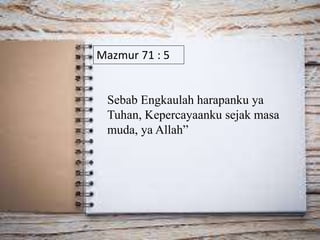 Mazmur 71 : 5
Sebab Engkaulah harapanku ya
Tuhan, Kepercayaanku sejak masa
muda, ya Allah”